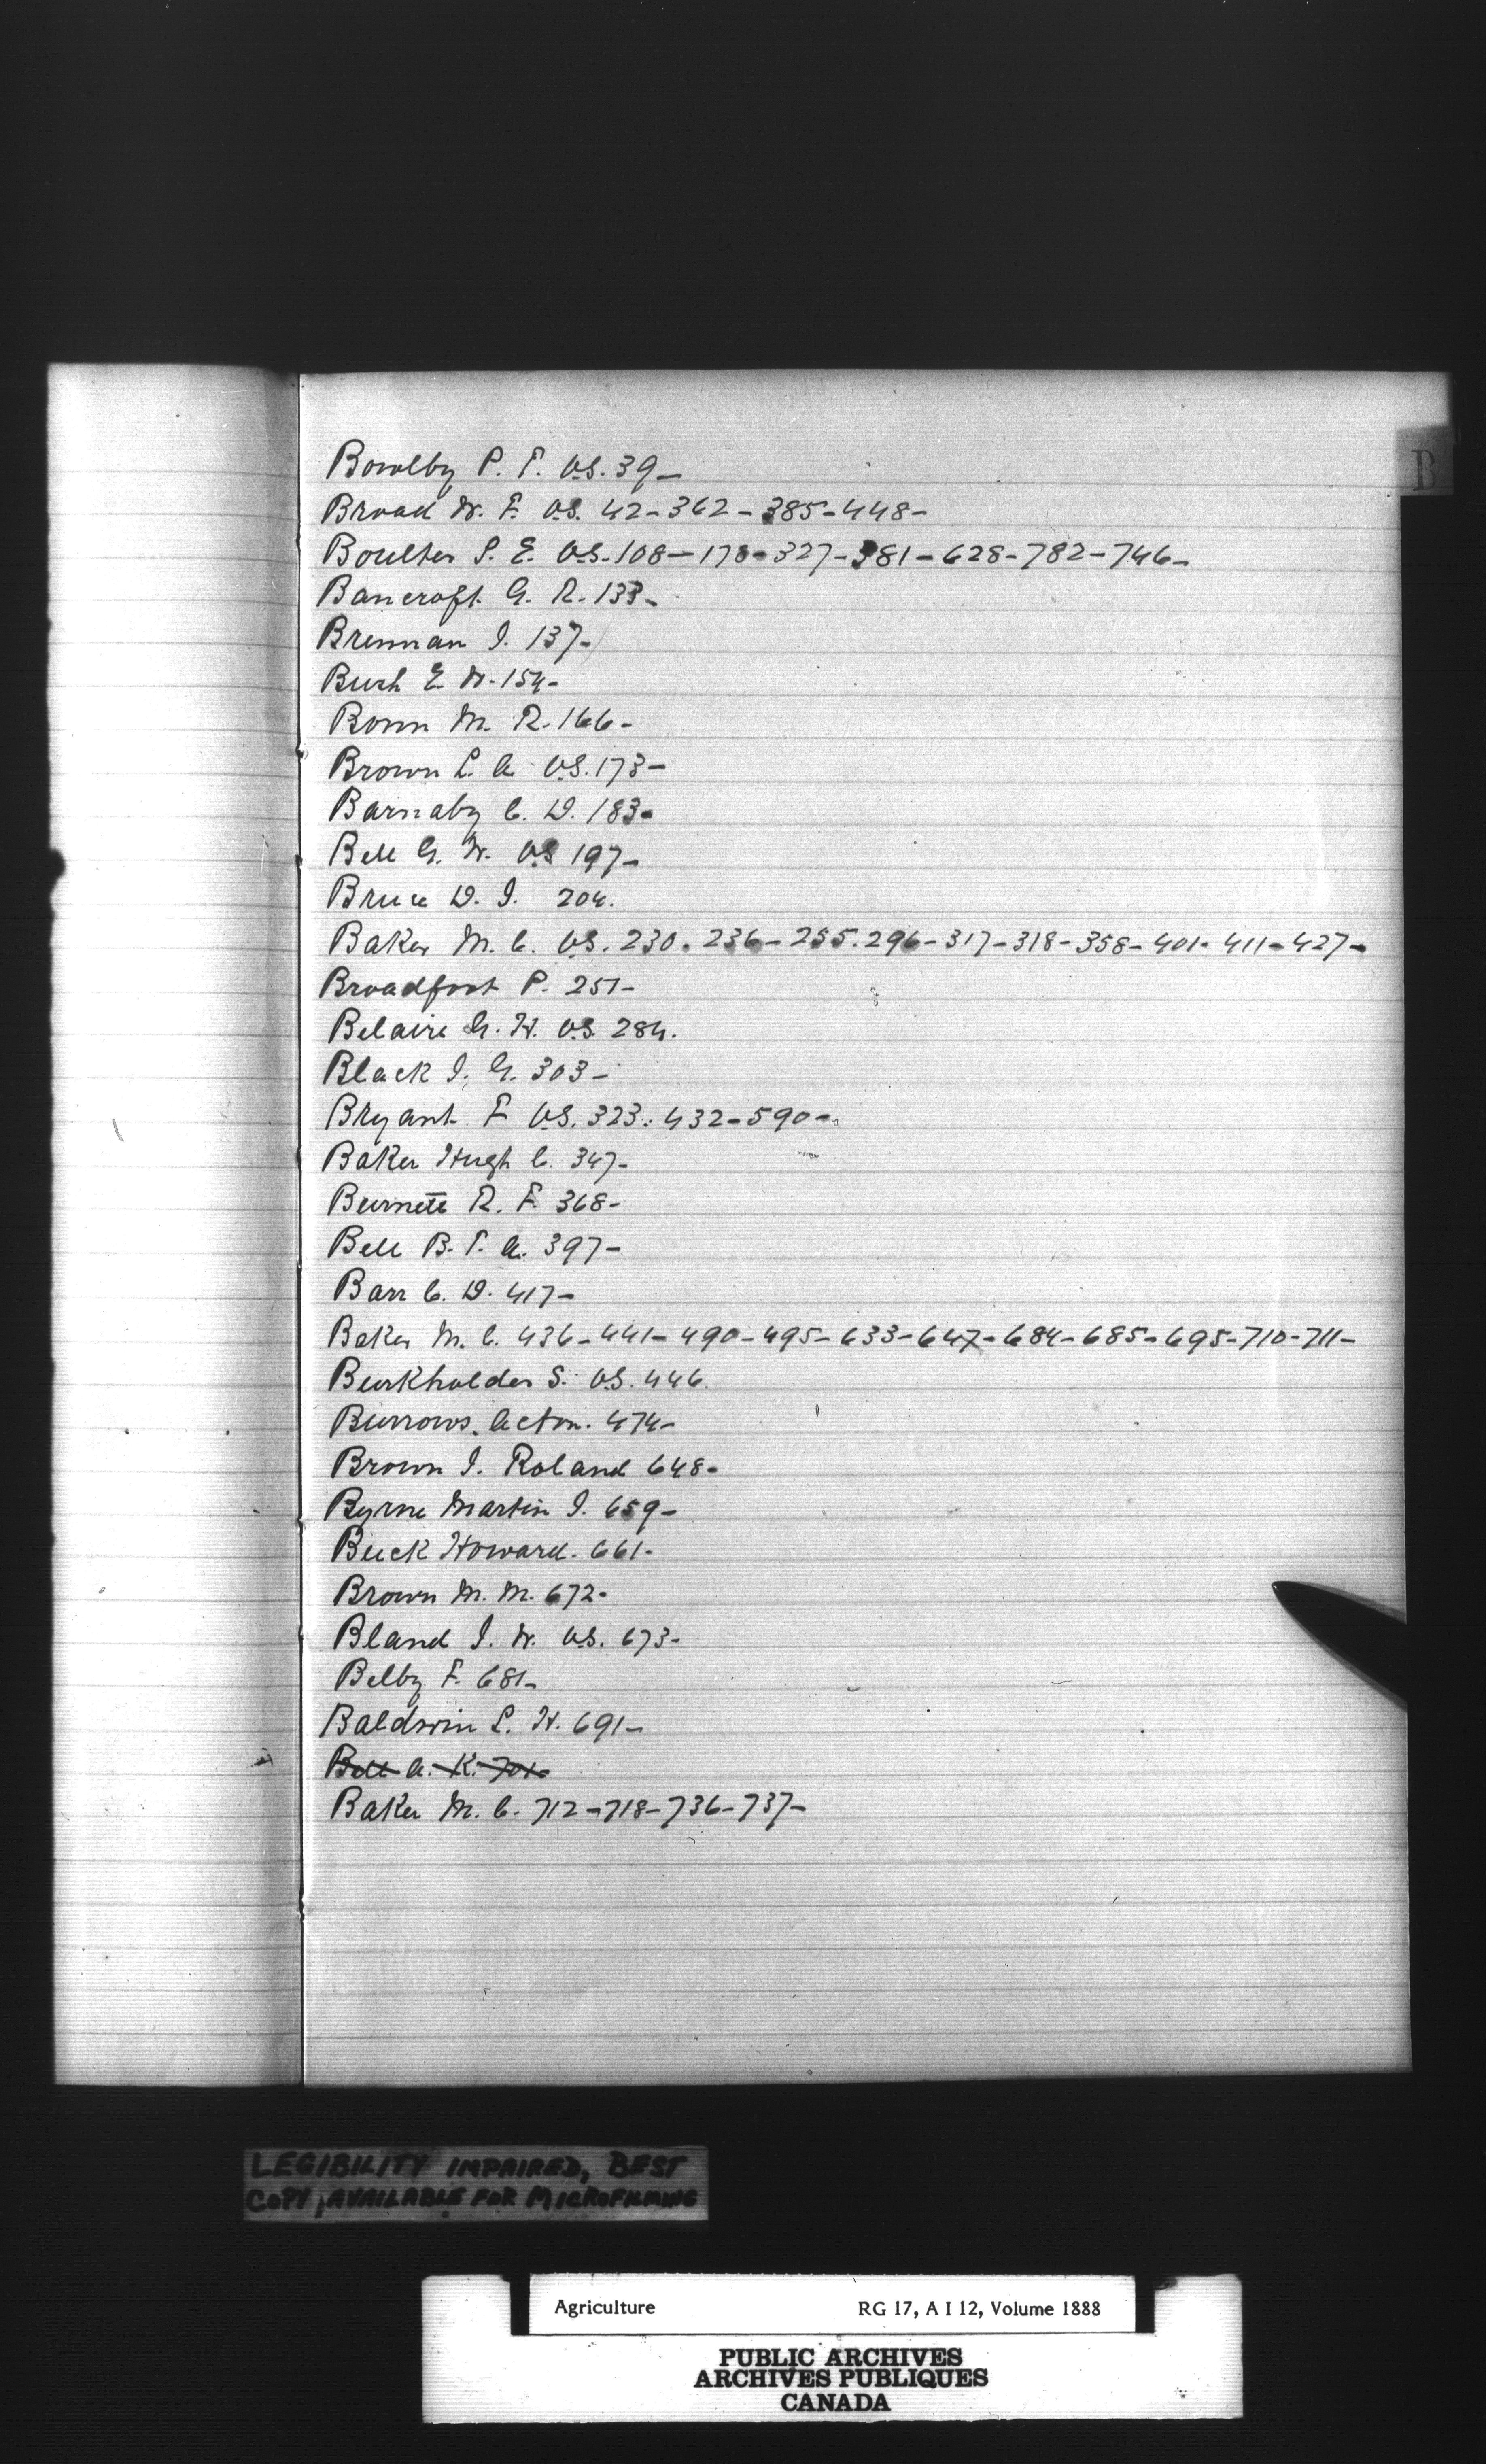 B
Bowlby P. T. V.S. 39-
Broad W. F. V.S. 42-362-385-448-
Boulter S. E. V.S. 108-178-327-381-628-782-746-
Bancroft G. R. 133-
Brennan J. 137-
Bush E W. 154-
Bonn M. R. 166-
Brown L. A V.S. 173-
Barnaby C. D. 183-
Bell G. W. V.S 197-
Bruce D. J. 204.
Baker M. C. V.S. 230. 236-255. 296-317-318-358-401-411-427-
Broadfoot P. 251-
Belaire G. H. V.S. 284.
Black J. G. 303-
Bryant F V.S. 323. 432-590-
Baker Hugh C. 347-
Burnett R. F. 368-
Bell B. T. A. 397-
Barr C. D. 417-
Baker M. C. 436-441-490-495-633-647-684-685-695-710-711-
Burkholder S. V.S. 446.
Burrows. Acton. 474-
Brown J. Roland 648-
Byrne Martin J. 659-
Buck Howard. 661-
Brown M. M. 672-
Bland J. W. V.S. 673-
Belby F. 681-
Baldwin L. H. 691-
Bell A. K. 701-
Baker M. C. 712-718-736-737-
LEGIBILITY IMPAIRED, BEST
COPY AVAILABLE FOR MICROFILMING
Agriculture RG 17, A I 12, Volume 1888
PUBLIC ARCHIVES
ARCHIVES PUBLIQUES
CANADA